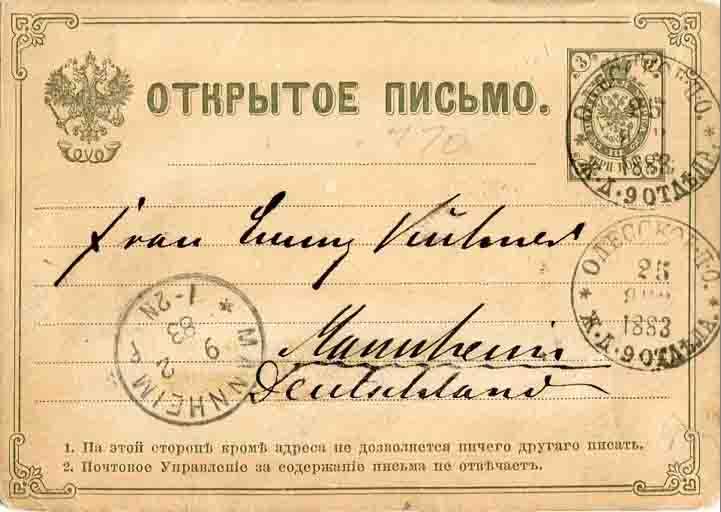 ОТКРЫТОЕ ПИСЬМО.
3
ОДЕССКОЕ П.О.
25
1883
Ж.Д. 9 ОТДѢЛА.
ОДЕССКОЕ П.О.
25
1883
Ж.Д. 9 ОТДѢЛА.
Frau
Mannheim
Deutschland
MANNHEIM
9 2
83
1-2N
1. На этой сторонѣ кромѣ адреса не дозволяется ничего другаго писать.
2. Почтовое Управленіе за содержаніе письма не отвѣчаетъ.